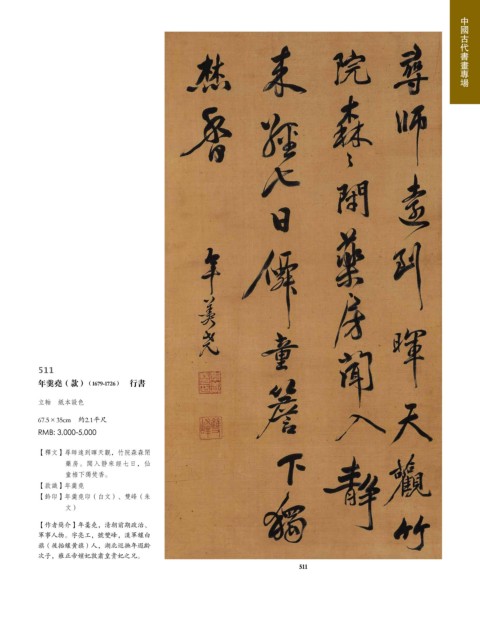 中國古代書畫專場
尋師遠到暉天觀竹
院森〻閑藥房聞入靜
來經七日僊童簷下獨
焚香
年羹堯
511
年羹堯（款）（1679-1726） 行書
立軸 紙本設色
67.5×35cm 約2.1平尺
RMB: 3,000-5,000
【釋文】尋師遠到暉天觀，竹院森森閉
藥房。聞人靜來經七日，仙
童檐下獨焚香。
【款識】年羹堯
【鈐印】年羹堯印（白文）、雙峰（朱
文）
【作者簡介】年羹堯，清朝前期政治、
軍事人物。字亮工，號雙峰，漢軍鑲白
旗（後抬鑲黃旗）人，湖北巡撫年遐齡
次子，雍正帝嬪妃敦肅皇貴妃之兄。
511